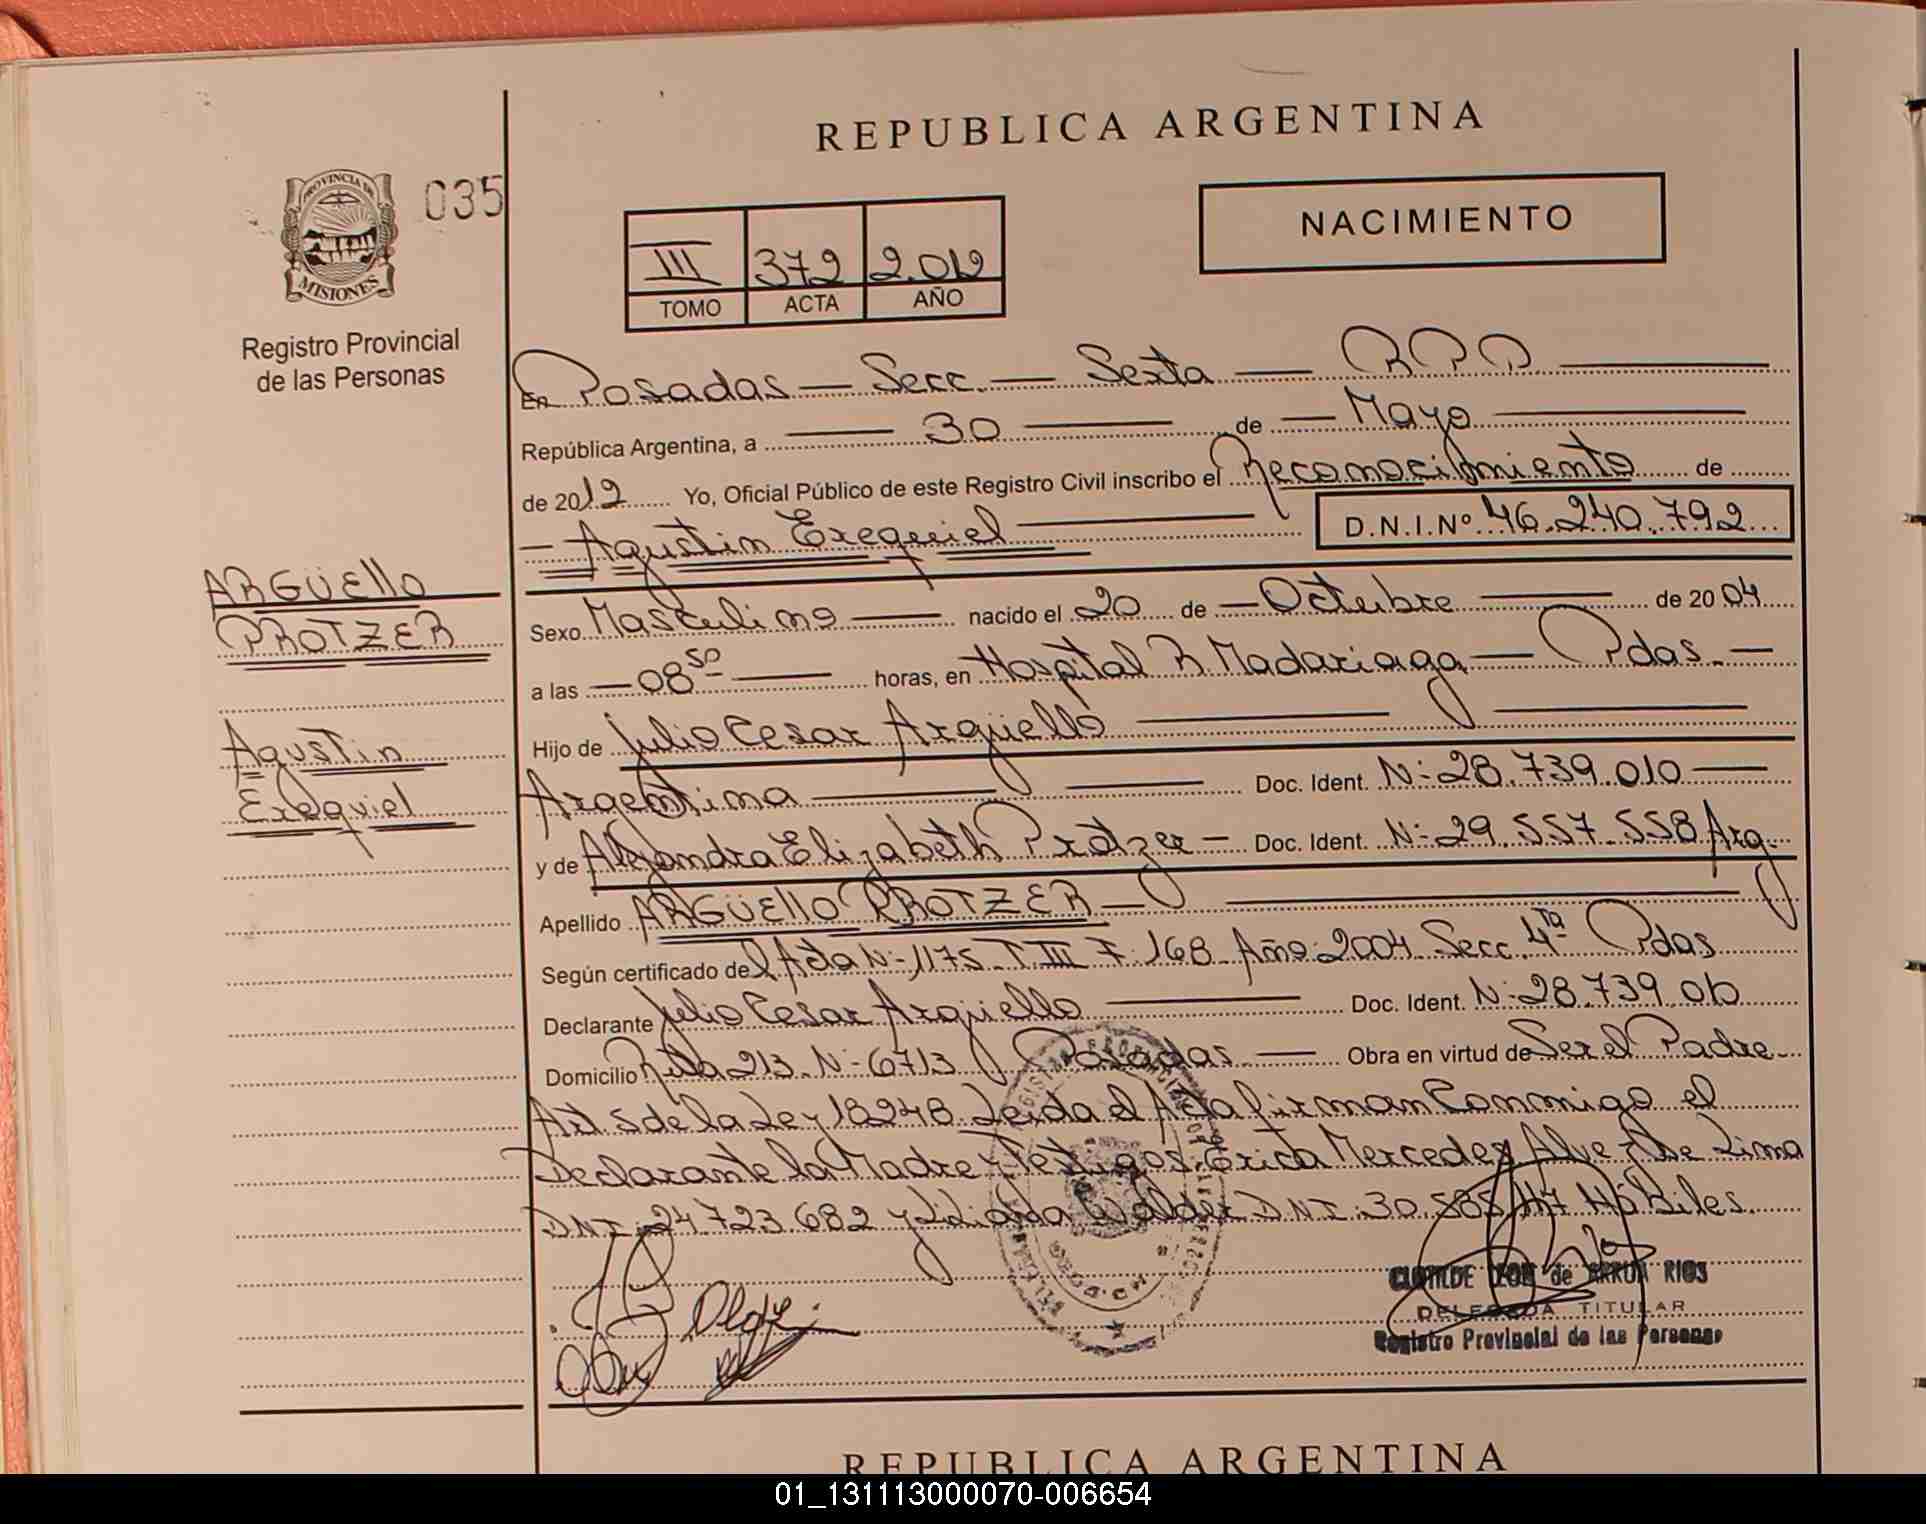 REPUBLICA ARGENTINA
PROVINCIA DE
MISIONES
035
NACIMIENTO
III 372 2.012
TOMO ACTA AÑO
Registro Provincial
de las Personas
En Posadas — Secc. — Sexta — RPP
República Argentina, a — 30 — de — Mayo
de 2012 Yo, Oficial Público de este Registro Civil inscribo el Reconocimiento de
— Agustin Exequiel — D.N.I.Nº 46.240.792
ARGÜEllO
PROTZER
Agustin
Exequiel
Sexo Masculino — nacido el 20 de — Octubre — de 2004
a las — 08 50 — horas, en Hospital R. Madariaga — Pdas. —
Hijo de Julio Cesar Argüello —
Argentina — Doc. Ident. N: 28.739.010 —
y de Alejandra Elizabeth Protzer — Doc. Ident. N: 29.557.558 Arg.
Apellido ARGÜEllO PROTZER —
Según certificado del Acta N: 1175 T III F 168 Año 2004 Secc. 4ta Pdas
Declarante Julio Cesar Argüello — Doc. Ident. N: 28.739.010
Domicilio Ruta 213 N: 6713 Posadas — Obra en virtud de Ser el Padre
Art 5 de la Ley 18248. Leida el Acta firman Conmigo el
Declarante la Madre y Testigos Erica Mercedes Alvez De Lima
DNI 24.723.682 y Liliana Walder DNI 30.585.117 Hábiles.
CLOTILDE LEON de ARRUA RIOS
DELEGADA TITULAR
Registro Provincial de las Personas
REPUBLICA ARGENTINA
01_131113000070-006654